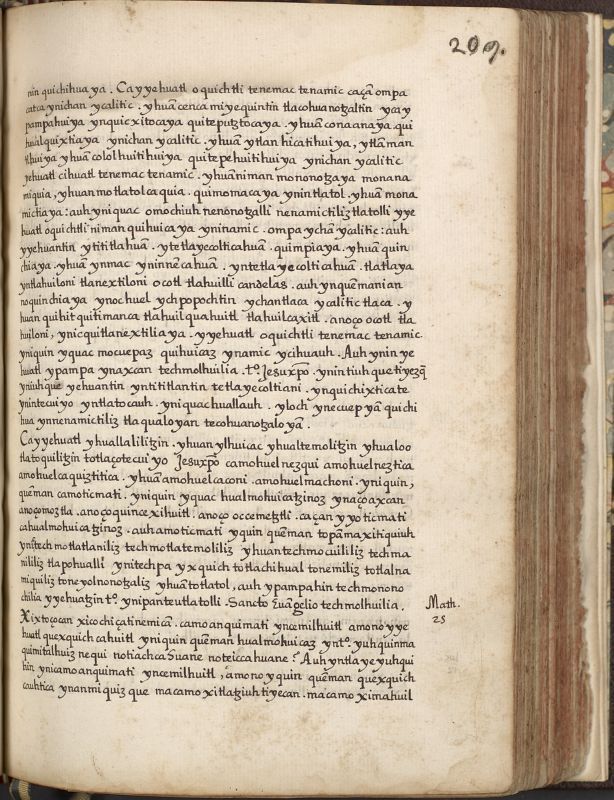 209.
nin quichihuaya. Cayyehuatl oquichtli tenemac tenamic caçã ompa
catca ynichan ycalitic. yhuã cenca miyequintin tlacohuanotzaltin yca y
pampahuiya ynquicxitocaya quiteputztocaya. yhuã conaanaya. qui
hualquixtiaya ynichan ycalitic. yhuã ytlan hicatihuiya, ytlãman
tihuiya yhuã cololhuitihuiya quitepehuitihuiya ynichan ycalitic
yehuatl cihuatl tenemac tenamic. yhuãniman mononotzaya monana
miquia, yhuan motlatolcaquia. quimomacaya ynintlatol. yhuã mona
mictiaya: auh yniquac omochiuh nenõnotzalli nenamictiliztlatolli yye
huatl oquichtli niman quihuicaya yninamic. ompa ychã ycalitic: auh
yyehuantin ytititlahuã. ytetlayecolticahuã. quimpiaya. yhuã quin
chiaya. yhuã ynmac ynninẽcahuã. yntetlayecolticahuã. tlatlaya
yntlahuiloni tlanextiloni ocotl tlahuilli candelas. auh ynquẽmanian
noquinchiaya ynochuel ychpopochtin ychantlaca ycalitictlaca. y
huan quihitquitimanca tlahuilquahuitl tlahuilcaxitl. anoço ocotl tla
huiloni, ynicquitlanextiliaya. yyehuatl oquichtli tenemac tenamic.
yniquin yquac mocuepaz quihuicaz ynamic ycihuauh. Auh ynin ye
huatl ypampa ynaxcan techmolhuilia. tº. Jesuxp̃o. ynintiuhquetiyezq̃
yniuhque yehuantin yntititlantin tetlayecoltiani. ynquichixticate
ynintecuiyo yntlatocauh. yniquac huallauh. yloch ynecuepyã quichi
hua ynnenamictiliz tlaqualoyan tecohuanotzaloyã.
Cayyehuatl yhuallaliltzin. yhuan ylhuicac yhualtemolitzin yhualoo
tlatoquilitzin totlaçotecuiyo Jesuxp̃o camohuelnezqui amohuelneztica
amohuelcaquiztitica. yhuã amohuelcaconi. amohuelmachoni. yniquin,
quẽman camoticmati. yniquin yquac hualmohuicatzinoz ynaço axcan
anoçomoztla. anoço quincexihuitl. anoço occemetztli. caçan yyoticmati
cahualmohuicatzinoz. auh amoticmati yquin quẽman topãmaxitiquiuh
ynitech motlatlaniliz techmotlatemoliliz yhuan techmocuililiz techma
nililiz tlapohualli ynitechpa yxquich totlachihual tonemiliz totlalna
miquiliz toneyolnonotzaliz yhuãtotlatol, auh ypampahin techmonono
chilia yyehuatzin tº. ynipanteutlatolli. Sancto Euãgelio techmolhuilia.
Math.
25
Xixtoçocan xicochiçatinemicã. camo anquimati yncemilhuitl amono yye
huatl quexquich cahuitl yniquin quẽman hualmohuicaz yntº. yuhquinma
quimitalhuiznequi notiachcaSuane noteiccahuane? Auh yntlayeyuhqui
hin ynicamo anquimati yncemilhuitl, amono yquin quẽman quexquich
cauhtica ynanmiquizque macamo xitlatziuhtiyecan. macamo ximahuil